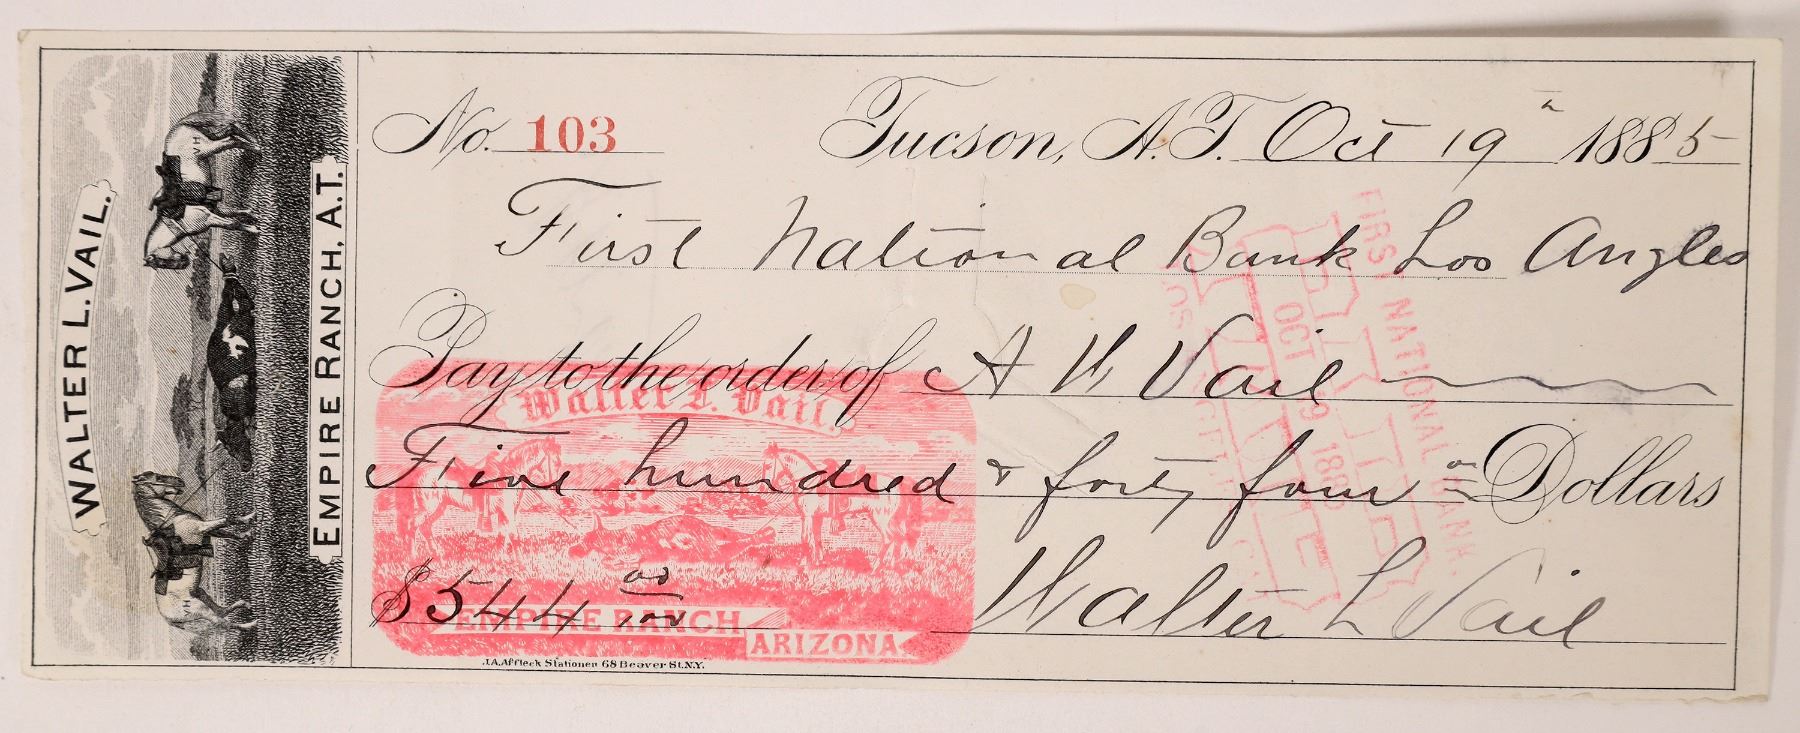 WALTER L. VAIL.
EMPIRE RANCH, A.T.
VH
VH
No. 103
Tucson, A.T. Oct 19th 1885
First National Bank Los Angles
Pay to the order of A W Vail
Five hundred & forty four Dollars
$544 00/100
Walter L Vail
Walter L. Vail.
EMPIRE RANCH
ARIZONA
J.A. Affleck Stationer 68 Beaver St. N.Y.
FIRST NATIONAL BANK.
OCT 19 1885